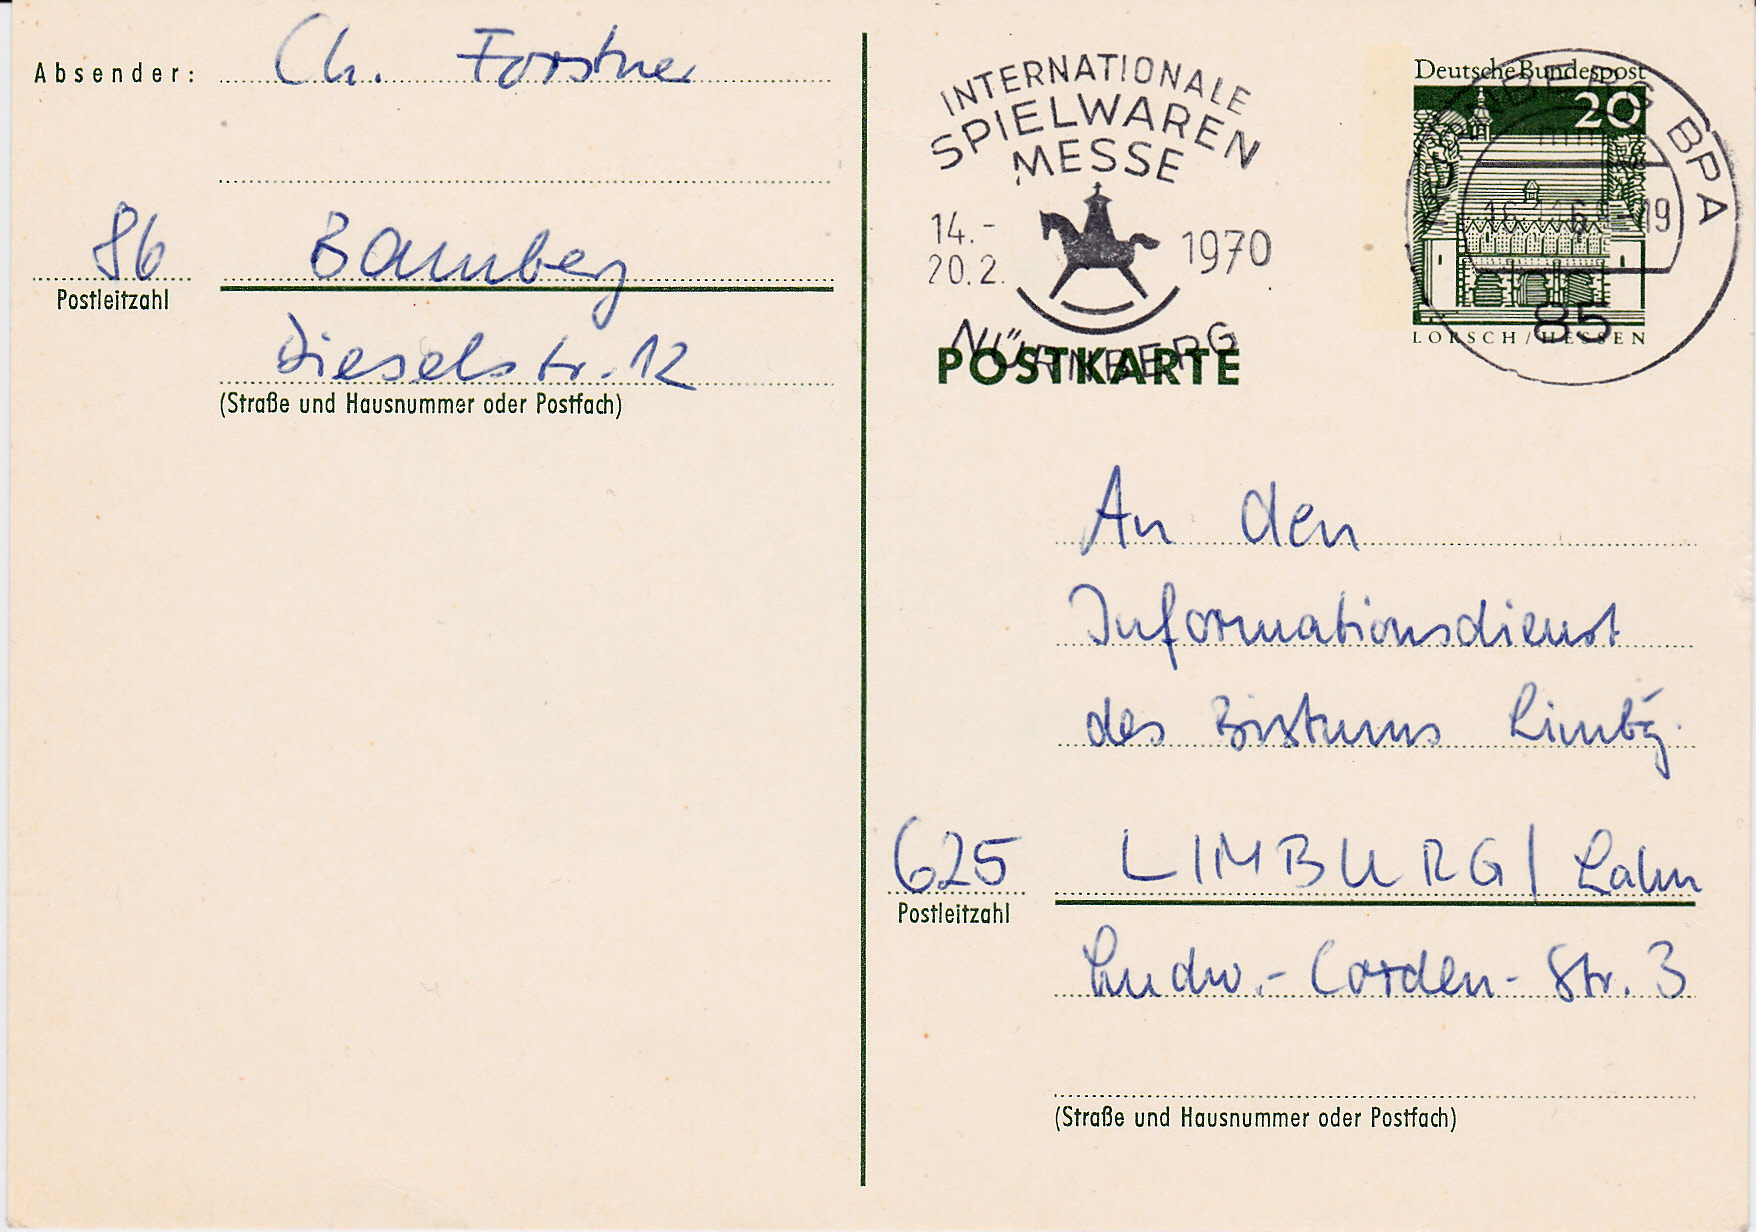 Absender: Ch. Forstner
86 Bamberg
Postleitzahl
Dieselstr. 12
(Straße und Hausnummer oder Postfach)
INTERNATIONALE
SPIELWAREN
MESSE
14.-
20.2.
1970
NÜRNBERG
POSTKARTE
Deutsche Bundespost
20
LORSCH/HESSEN
BPA
85
An den
Informationsdienst
des Bistums Limbg.
625 LIMBURG / Lahn
Postleitzahl
Ludw.-Corden-Str. 3
(Straße und Hausnummer oder Postfach)